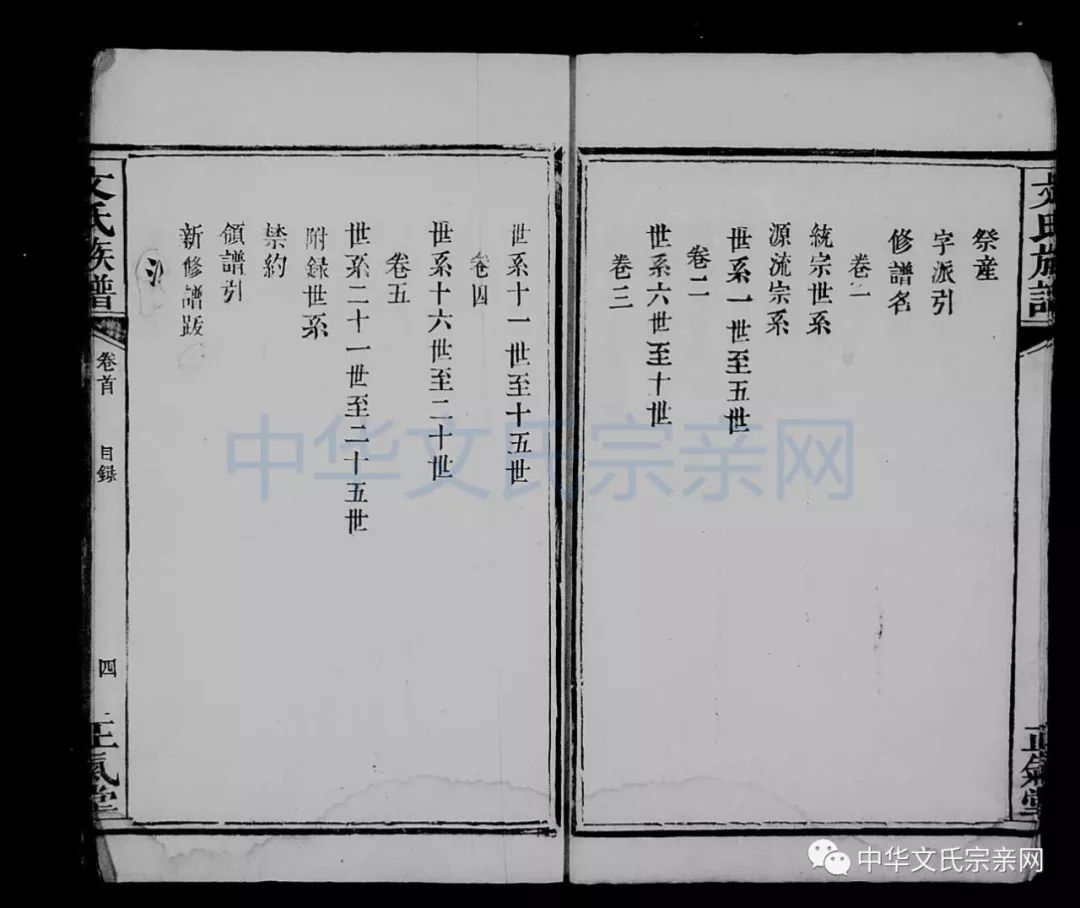 文氏族譜
正氣堂
祭産
字派引
修譜名
卷一
統宗世系
源流宗系
世系一世至五世
卷二
世系六世至十世
卷三
世系十一世至十五世
卷四
世系十六世至二十世
卷五
世系二十一世至二十五世
附録世系
禁約
領譜引
新修譜跋
文氏族譜
卷首
目録
四
正氣堂
中华文氏宗亲网
中华文氏宗亲网